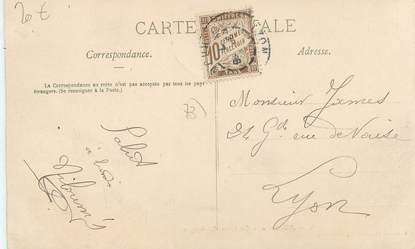 20 €
CARTE POSTALE
Correspondance.
Adresse.
La Correspondance au recto n'est pas acceptée par tous les pays
étrangers. (Se renseigner à la Poste.)
CHIFFRE
10
73
Monsieur James
24 Gde rue de Vaise
Lyon
Salut
à tous